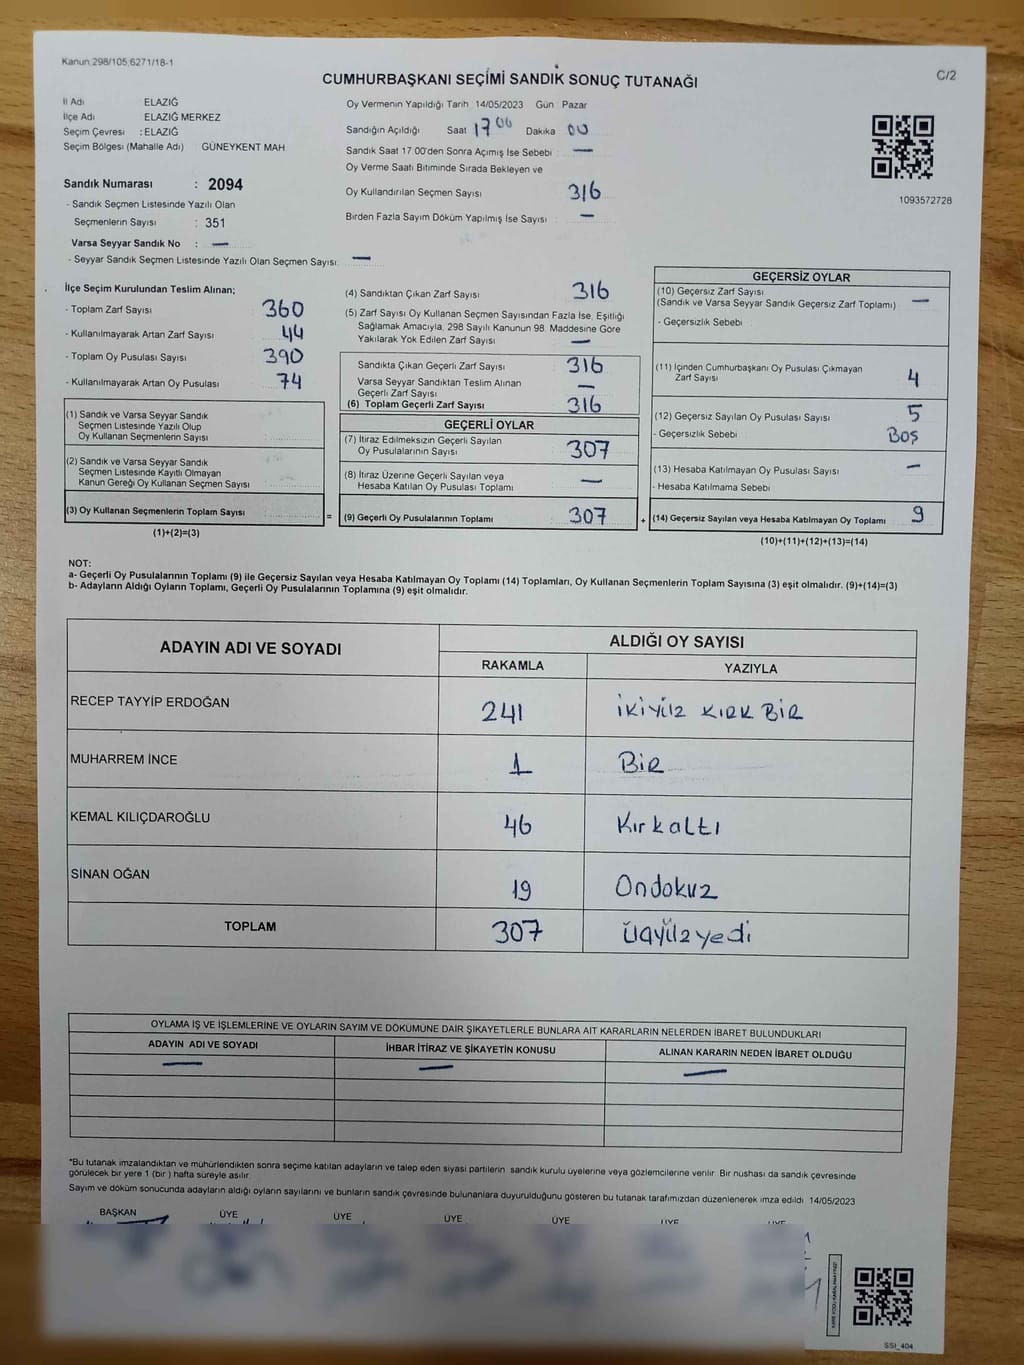 Kanun.298/105;6271/18-1
C/2
CUMHURBAŞKANI SEÇİMİ SANDIK SONUÇ TUTANAĞI
İl Adı ELAZIĞ
İlçe Adı ELAZIĞ MERKEZ
Seçim Çevresi : ELAZIĞ
Seçim Bölgesi (Mahalle Adı) GÜNEYKENT MAH
Sandık Numarası : 2094
- Sandık Seçmen Listesinde Yazılı Olan
Seçmenlerin Sayısı : 351
Varsa Seyyar Sandık No : —
- Seyyar Sandık Seçmen Listesinde Yazılı Olan Seçmen Sayısı: —
Oy Vermenin Yapıldığı Tarih 14/05/2023 Gün Pazar
Sandığın Açıldığı Saat 17 00 Dakika 00
Sandık Saat 17.00'den Sonra Açımış İse Sebebi : —
Oy Verme Saati Bitiminde Sırada Bekleyen ve
Oy Kullandırılan Seçmen Sayısı 316
Birden Fazla Sayım Döküm Yapılmış İse Sayısı : —
1093572728
İlçe Seçim Kurulundan Teslim Alınan;
- Toplam Zarf Sayısı 360
- Kullanılmayarak Artan Zarf Sayısı 44
- Toplam Oy Pusulası Sayısı 390
- Kullanılmayarak Artan Oy Pusulası 74
(1) Sandık ve Varsa Seyyar Sandık
Seçmen Listesinde Yazılı Olup
Oy Kullanan Seçmenlerin Sayısı :
(2) Sandık ve Varsa Seyyar Sandık
Seçmen Listesinde Kayıtlı Olmayan
Kanun Gereği Oy Kullanan Seçmen Sayısı :
(3) Oy Kullanan Seçmenlerin Toplam Sayısı
(1)+(2)=(3)
(4) Sandıktan Çıkan Zarf Sayısı 316
(5) Zarf Sayısı Oy Kullanan Seçmen Sayısından Fazla İse, Eşitliği
Sağlamak Amacıyla, 298 Sayılı Kanunun 98. Maddesine Göre
Yakılarak Yok Edilen Zarf Sayısı —
Sandıkta Çıkan Geçerli Zarf Sayısı 316
Varsa Seyyar Sandıktan Teslim Alınan
Geçerli Zarf Sayısı —
(6) Toplam Geçerli Zarf Sayısı 316
GEÇERLİ OYLAR
(7) İtiraz Edilmeksizin Geçerli Sayılan
Oy Pusulalarının Sayısı 307
(8) İtiraz Üzerine Geçerli Sayılan veya
Hesaba Katılan Oy Pusulası Toplamı —
= (9) Geçerli Oy Pusulalarının Toplamı 307 +
GEÇERSİZ OYLAR
(10) Geçersiz Zarf Sayısı
(Sandık ve Varsa Seyyar Sandık Geçersiz Zarf Toplamı) —
- Geçersizlik Sebebi :
(11) İçinden Cumhurbaşkanı Oy Pusulası Çıkmayan
Zarf Sayısı 4
(12) Geçersiz Sayılan Oy Pusulası Sayısı 5
- Geçersizlik Sebebi BOŞ
(13) Hesaba Katılmayan Oy Pusulası Sayısı —
- Hesaba Katılmama Sebebi :
(14) Geçersiz Sayılan veya Hesaba Katılmayan Oy Toplamı 9
(10)+(11)+(12)+(13)=(14)
NOT:
a- Geçerli Oy Pusulalarının Toplamı (9) ile Geçersiz Sayılan veya Hesaba Katılmayan Oy Toplamı (14) Toplamları, Oy Kullanan Seçmenlerin Toplam Sayısına (3) eşit olmalıdır. (9)+(14)=(3)
b- Adayların Aldığı Oyların Toplamı, Geçerli Oy Pusulalarının Toplamına (9) eşit olmalıdır.
ADAYIN ADI VE SOYADI ALDIĞI OY SAYISI
RAKAMLA YAZIYLA
RECEP TAYYİP ERDOĞAN 241 İKİYÜZ KIRK BİR
MUHARREM İNCE 1 BİR
KEMAL KILIÇDAROĞLU 46 Kırkaltı
SİNAN OĞAN 19 Ondokuz
TOPLAM 307 Üçyüzyedi
OYLAMA İŞ VE İŞLEMLERİNE VE OYLARIN SAYIM VE DÖKÜMÜNE DAİR ŞİKAYETLERLE BUNLARA AİT KARARLARIN NELERDEN İBARET BULUNDUKLARI
ADAYIN ADI VE SOYADI İHBAR İTİRAZ VE ŞİKAYETİN KONUSU ALINAN KARARIN NEDEN İBARET OLDUĞU
— — —
*Bu tutanak imzalandıktan ve mühürlendikten sonra seçime katılan adayların ve talep eden siyasi partilerin sandık kurulu üyelerine veya gözlemcilerine verilir. Bir nüshası da sandık çevresinde
görülecek bir yere 1 (bir) hafta süreyle asılır.
Sayım ve döküm sonucunda adayların aldığı oyların sayılarını ve bunların sandık çevresinde bulunanlara duyurulduğunu gösteren bu tutanak tarafımızdan düzenlenerek imza edildi. 14/05/2023
BAŞKAN ÜYE ÜYE ÜYE ÜYE ÜYE ÜYE
SSI_404